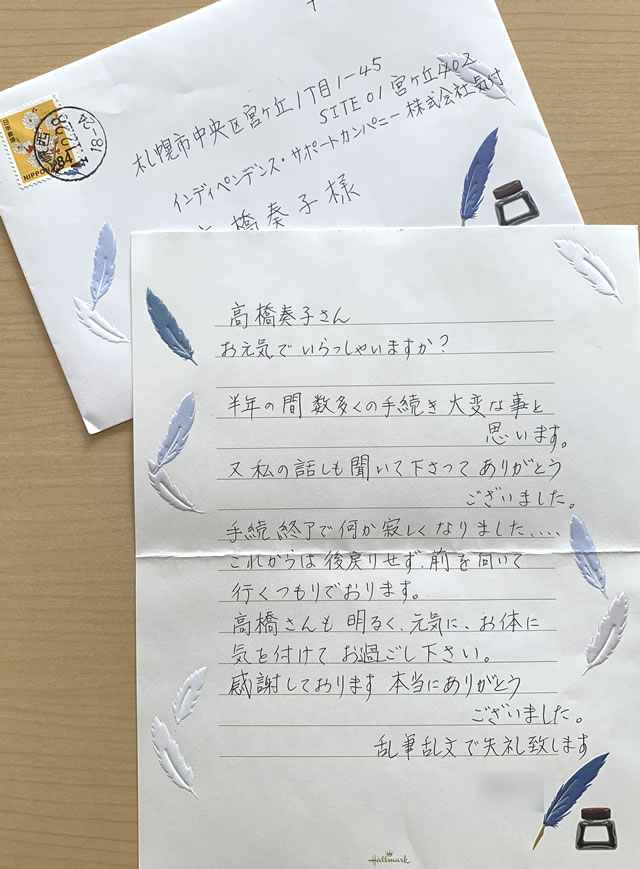 札幌市中央区宮ヶ丘1丁目1-45
SITE 01 宮ヶ丘402
インディペンデンス・サポートカンパニー 株式会社気付
橋奏子様
NIPPON
84
高橋奏子さん
お元気でいらっしゃいますか?
半年の間 数多くの手続き 大変な事と
思います。
又 私の話しも聞いて下さって ありがとう
ございました。
手続 終了で何か寂しくなりました....
これからは 後戻りせず、前を向いて
行くつもりでおります。
高橋さんも 明るく、元気に、お体に
気を付けて お過ごし下さい。
感謝しております 本当にありがとう
ございました。
乱筆乱文で失礼致します
Hallmark